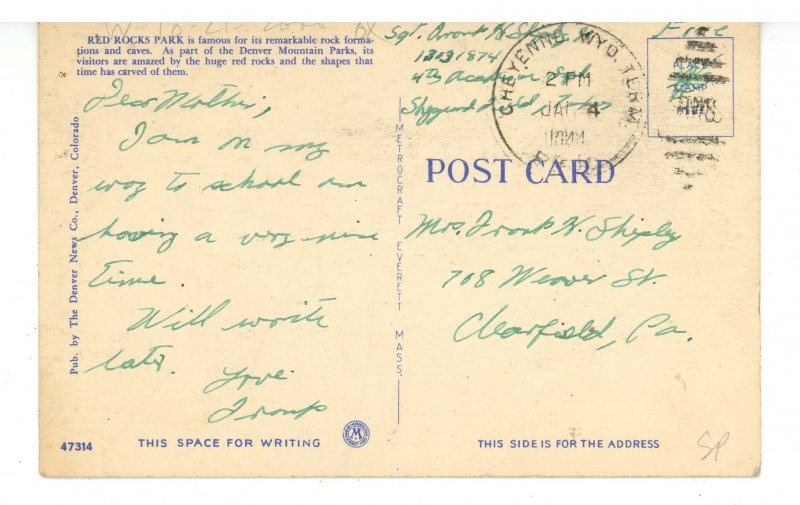 RED ROCKS PARK is famous for its remarkable rock forma-
tions and caves. As part of the Denver Mountain Parks, its
visitors are amazed by the huge red rocks and the shapes that
time has carved of them.
Dear Mother,
I am on my
way to school am
having a very nice
time.
Will write
later.
Love
Frank
Pub. by The Denver News Co., Denver, Colorado
47314
THIS SPACE FOR WRITING
METROCRAFT EVERETT MASS.
Sgt. Frank H.
Free
13131874
4th
CHEYENNE, WYO. TERM.
2 PM
JAN 4
PLACE
STAMP
HERE
POST CARD
Mrs. Frank H. Shipley
708 Weaver St.
Clearfield, Pa.
THIS SIDE IS FOR THE ADDRESS
SP